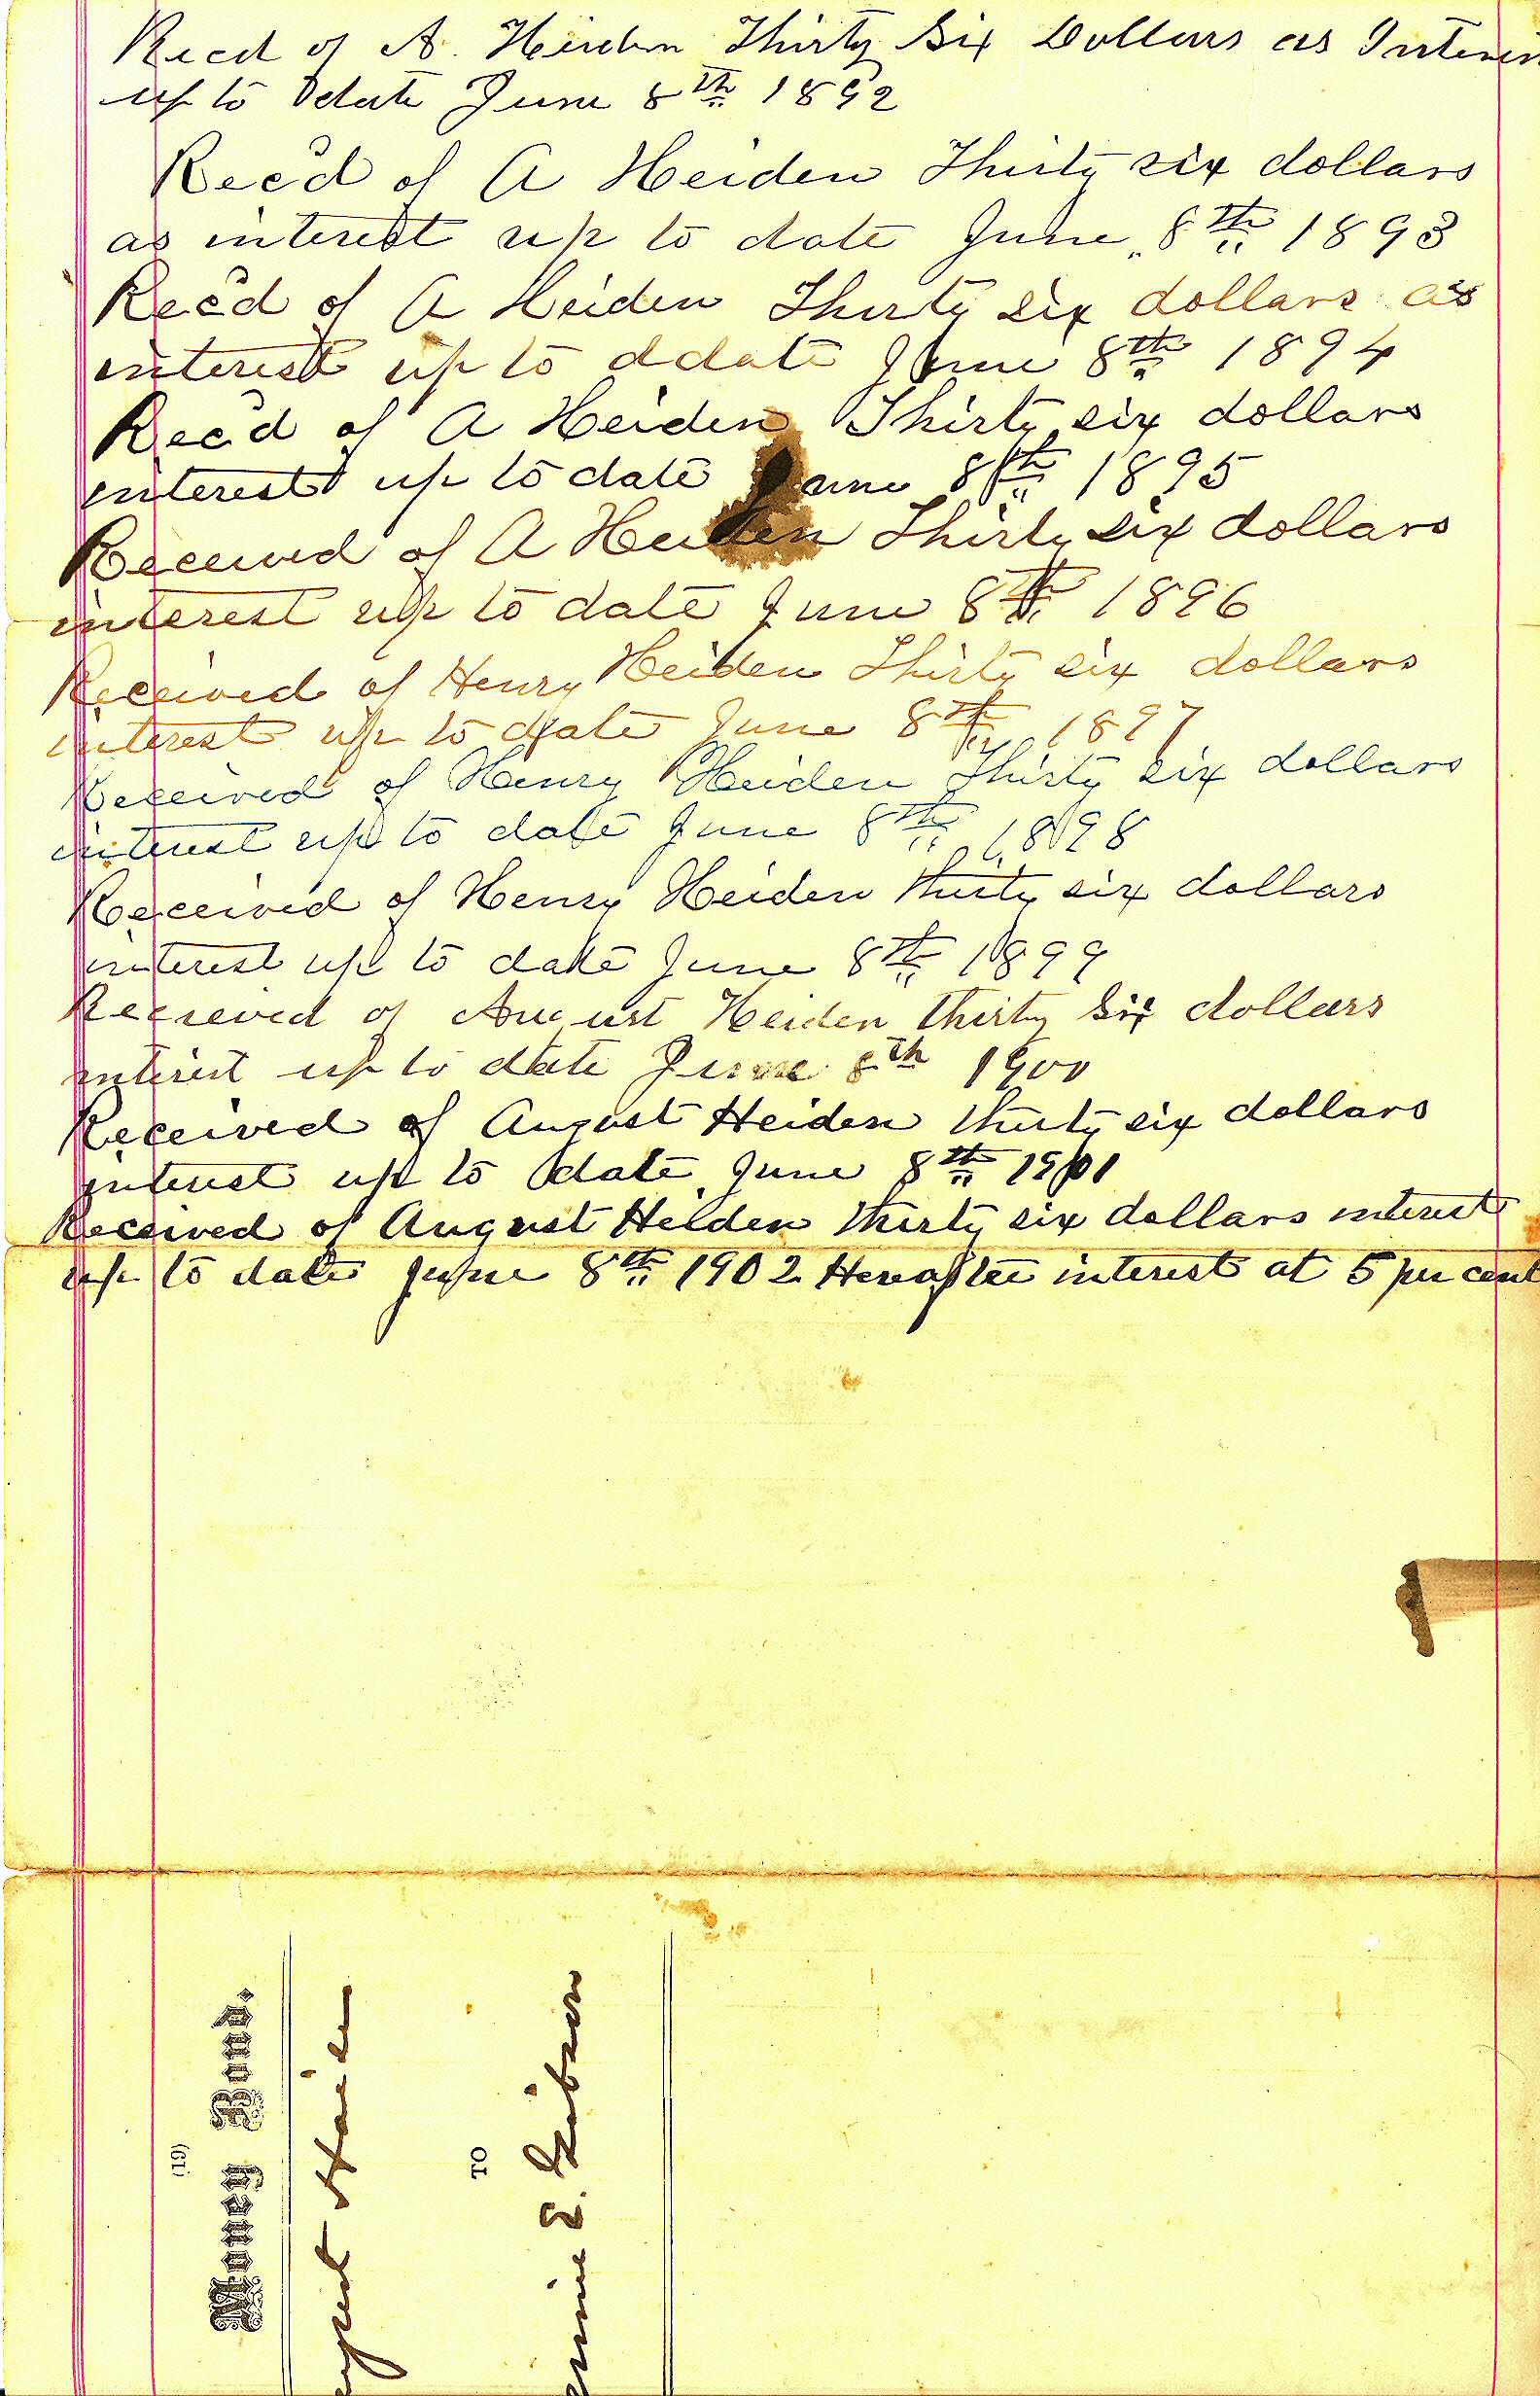 Recd of A. Heiden Thirty Six Dollars as Interes
up to date June 8th 1892
Rec'd of A Heiden Thirty six dollars
as interest up to date June 8th 1893
Rec'd of A Heiden Thirty six dollars as
interest up to ddate June 8th 1894
Rec'd of A Heiden Thirty six dollars
interest up to date June 8th 1895
Received of A Heiden Thirty six dollars
interest up to date June 8th 1896
Received of Henry Heiden Thirty six dollars
interest up to date June 8th 1897
Received of Henry Heiden Thirty six dollars
interest up to date June 8th 1898
Received of Henry Heiden thirty six dollars
interest up to date June 8th 1899
Recieved of August Heiden thirty Six dollars
interest up to date June 8th 1900
Received of August Heiden thirty six dollars
interest up to date June 8th 1901
Received of August Heiden thirty six dollars interest
up to date June 8th 1902 Hereafter interest at 5 per cent
(19)
Money Bond.
ugust Haiden
TO
ennie E. Gibson